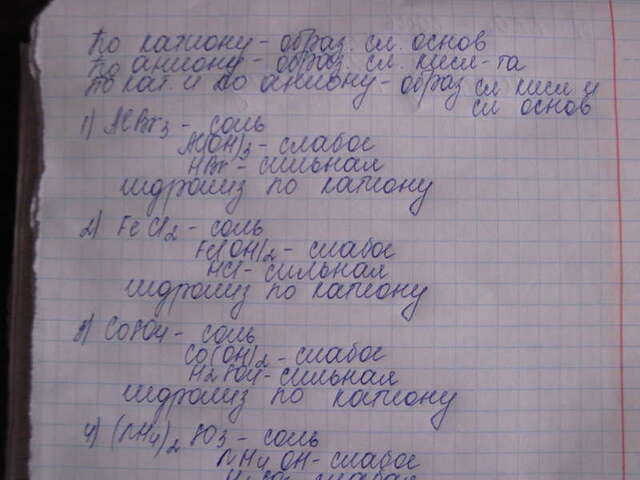 по катиону - образ. сл. основ
по аниону - образ. сл. кисл-та
по кат. и по аниону - образ сл кисл и
сл основ
1) AlBr3 - соль
Al(OH)3 - слабое
HBr - сильная
гидролиз по катиону
2) FeCl2 - соль
Fe(OH)2 - слабое
HCl - сильная
гидролиз по катиону
3) CoSO4 - соль
Co(OH)2 - слабое
H2SO4 - сильная
гидролиз по катиону
4) (NH4)2 SO3 - соль
NH4OH - слабое